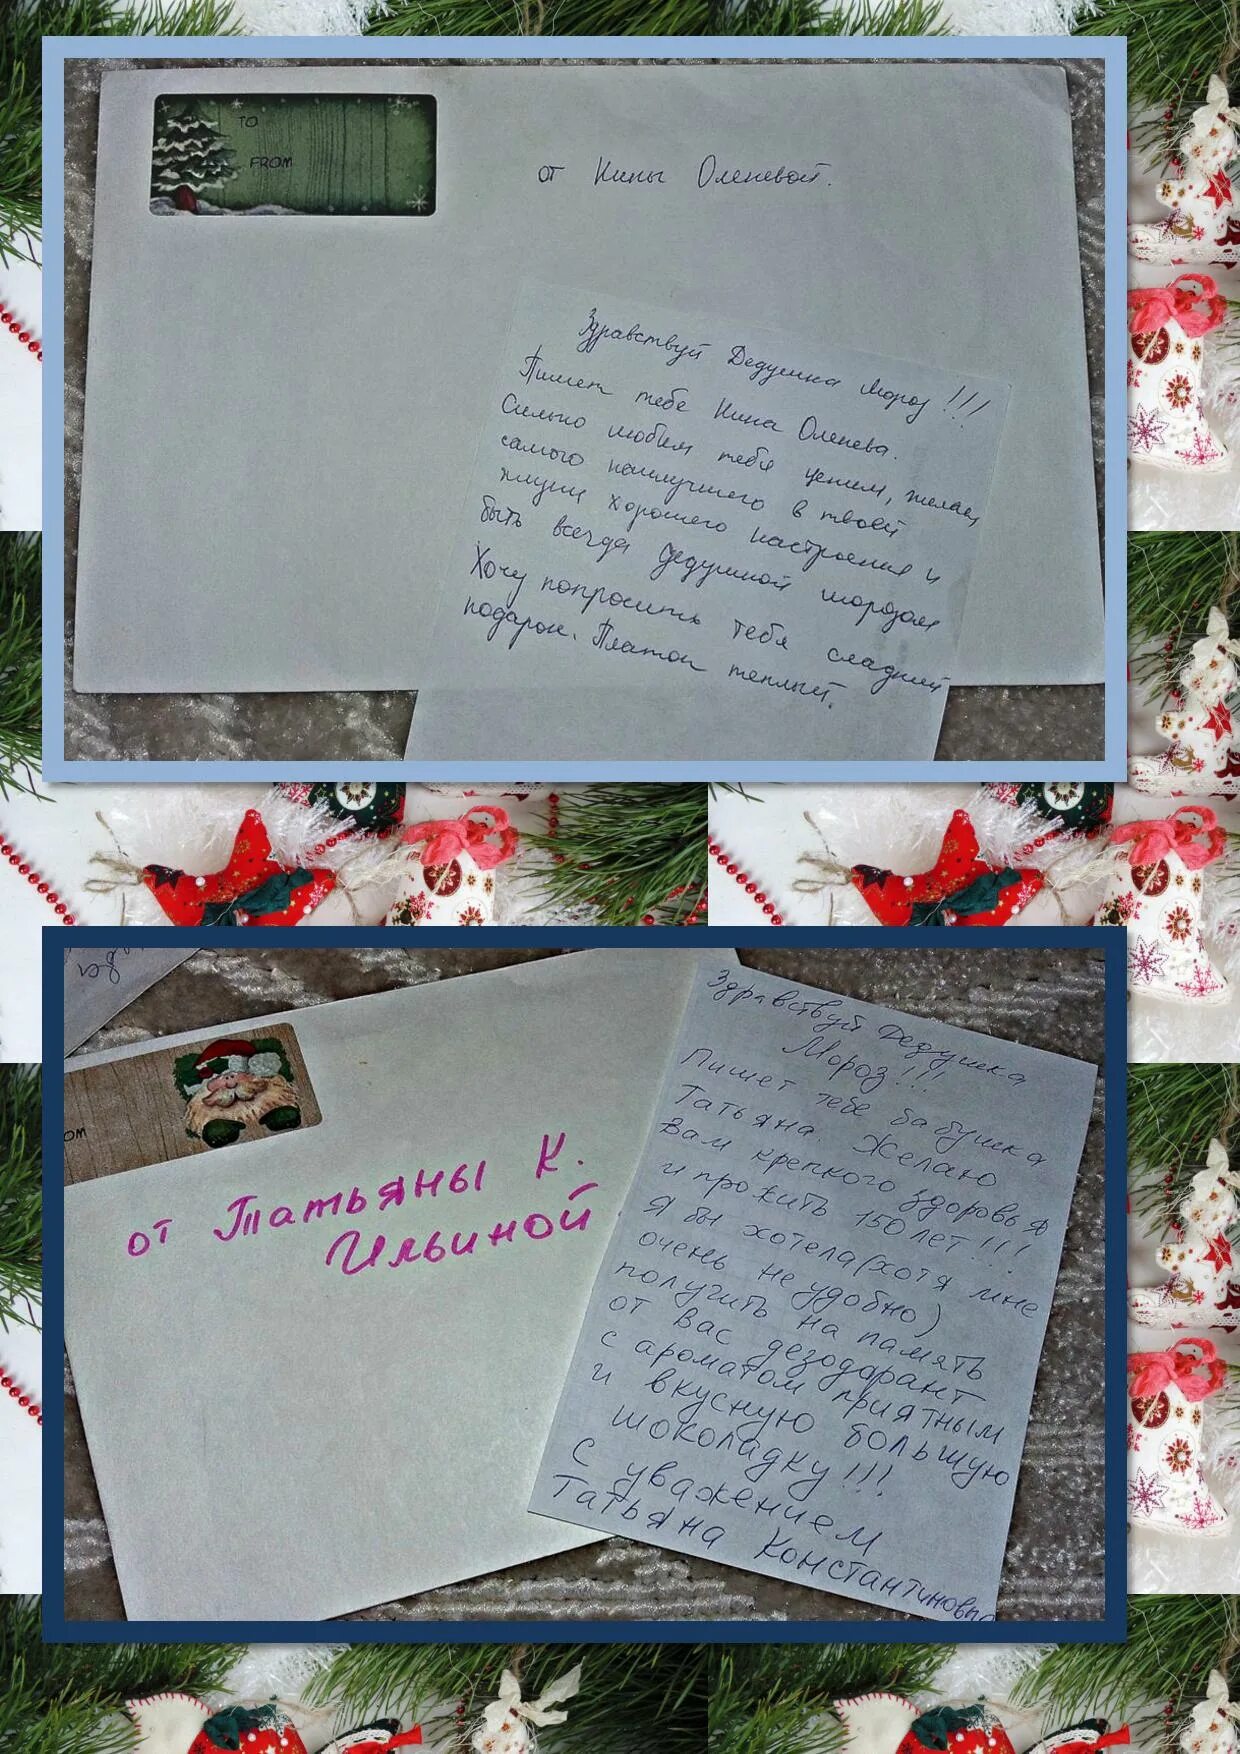 TO
FROM
от Нины Оленевой.
Здравствуй Дедушка Мороз!!!
Пишет тебе Нина Оленева.
Сильно любим тебя ценим, желаем
самого наилучшего в твоей
жизни хорошего настроения и
быть всегда Дедушкой морозом
Хочу попросить тебя сладкий
подарок. Платок теплый.
ОМ
от Татьяны К.
Ильиной
Здравствуй Дедушка
Мороз!!!
Пишет тебе бабушка
Татьяна. Желаю
Вам крепкого здоровья
и прожить 150 лет!!!
Я бы хотела (хотя мне
очень не удобно)
получить на память
от Вас дезодорант
с ароматом приятным
и вкусную большую
шоколадку!!!
С уважением
Татьяна Константиновна